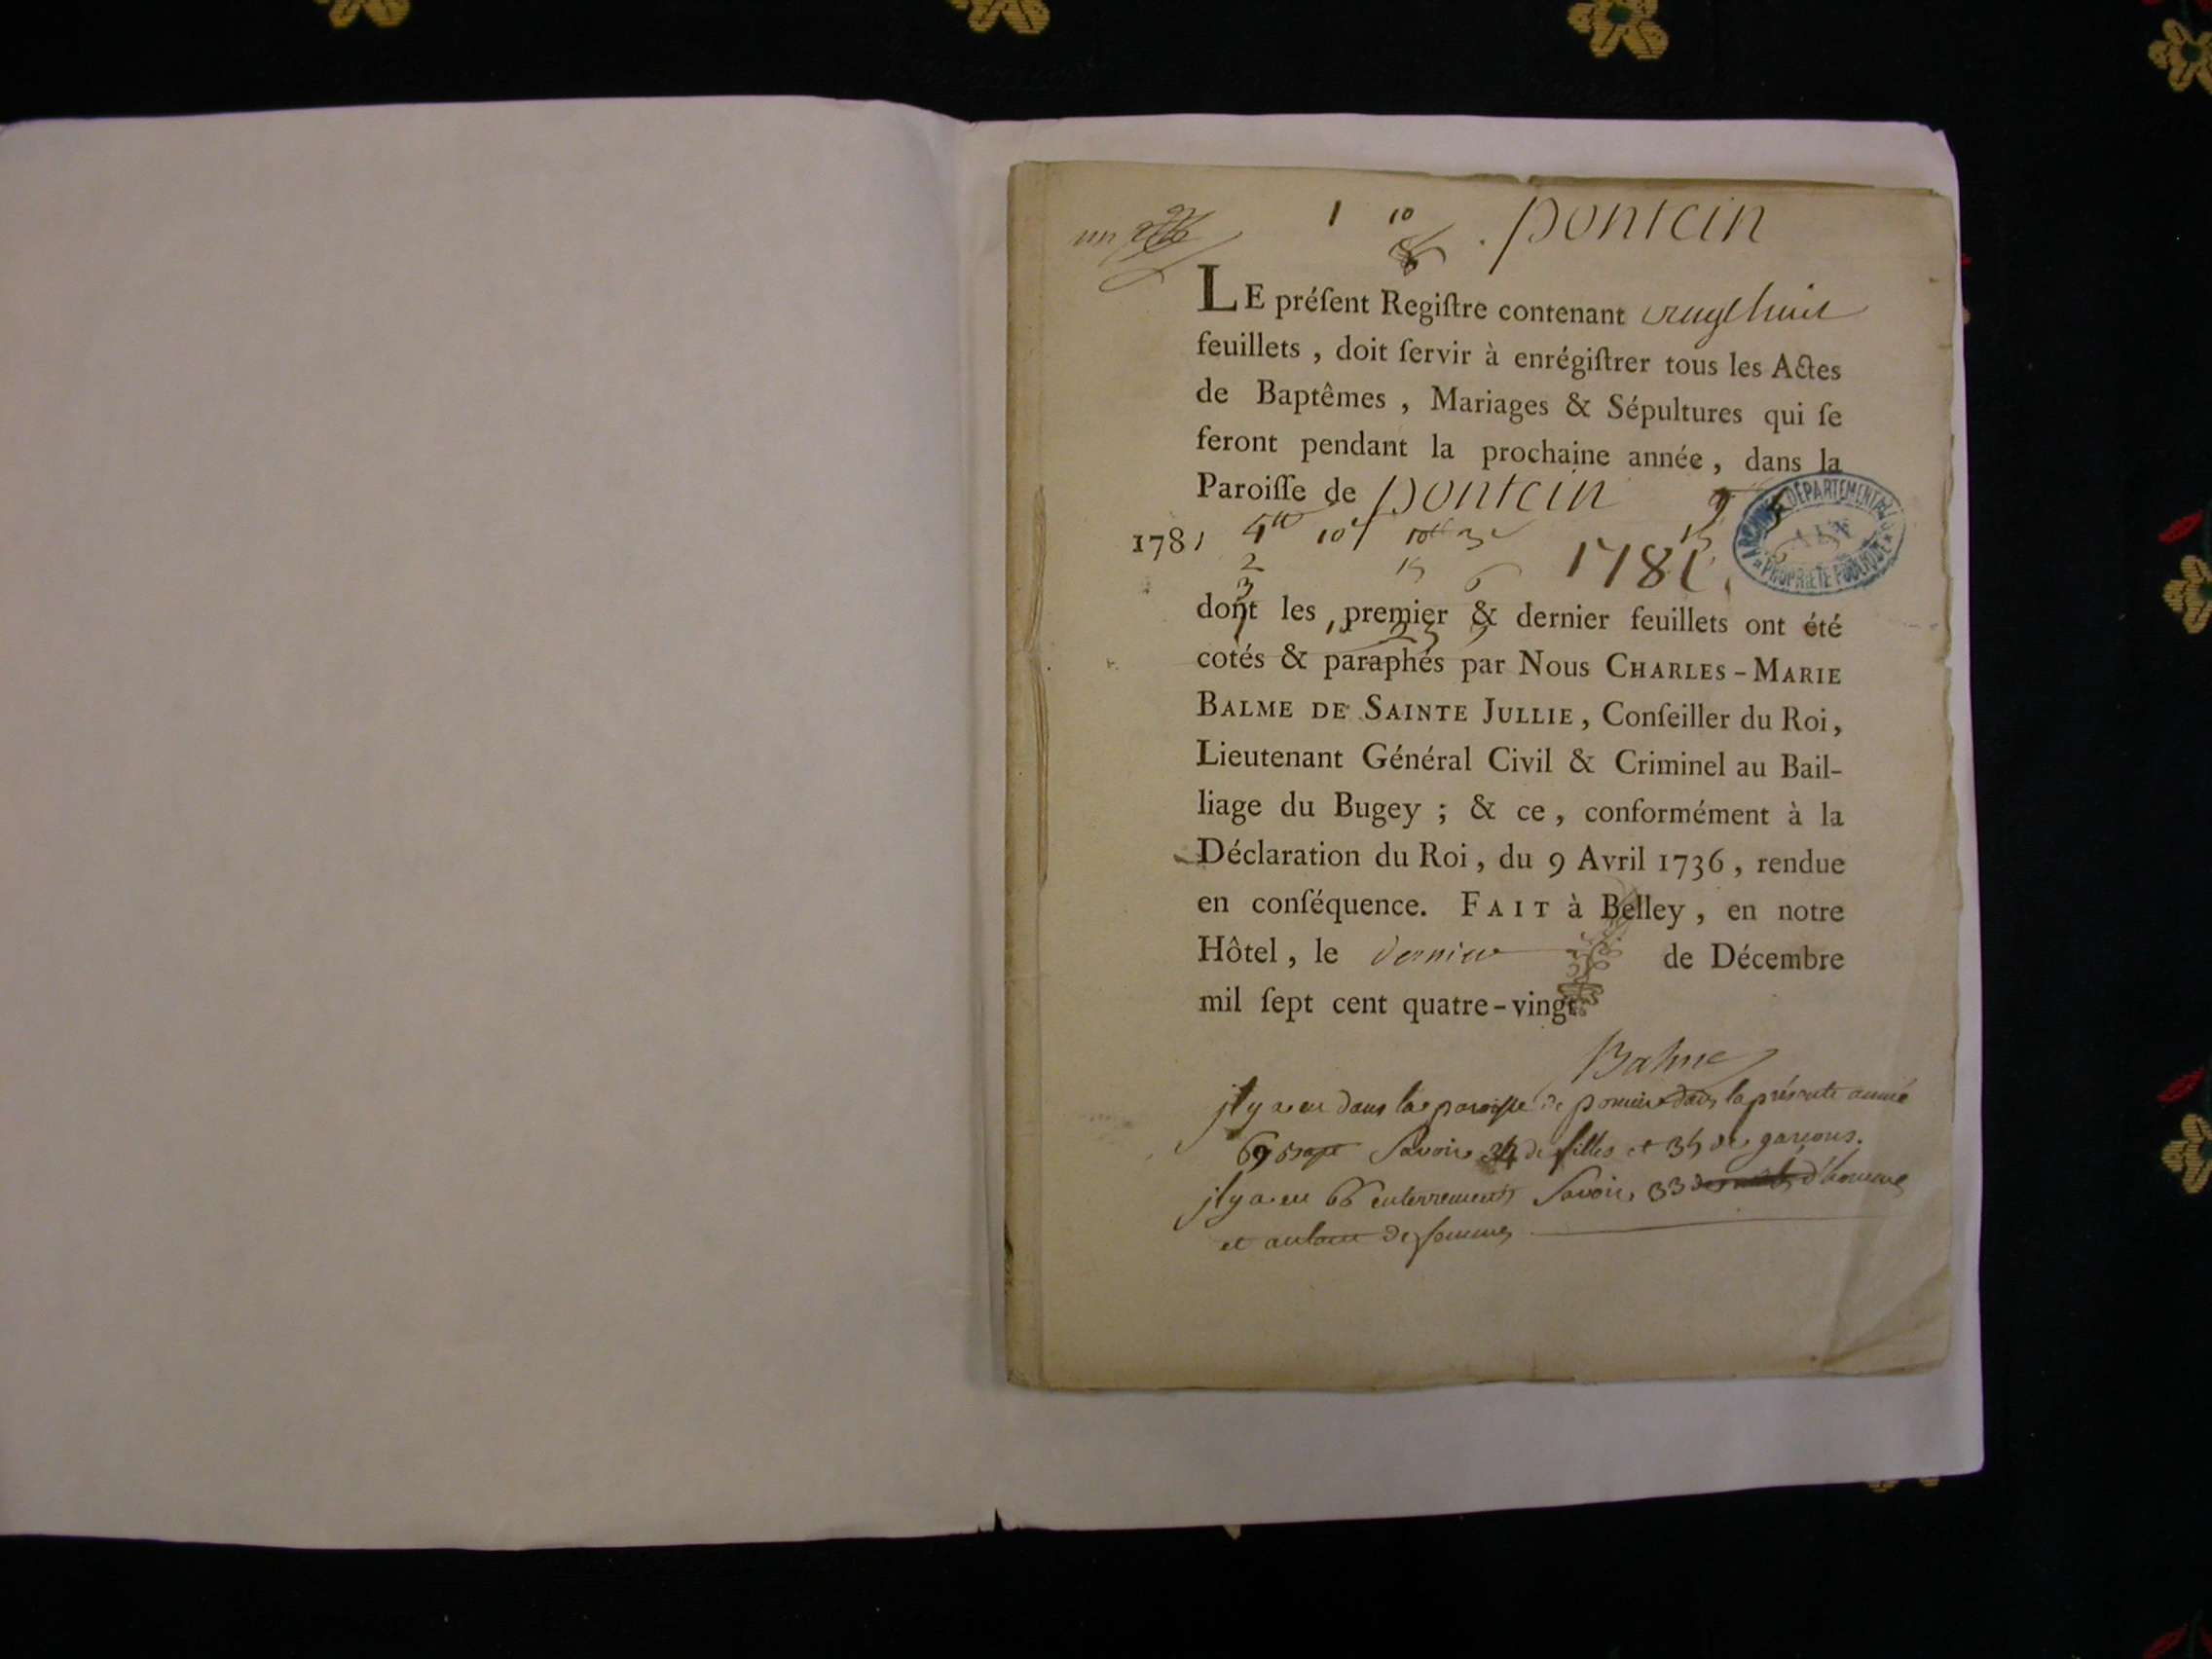 un
1 10 pontcin
LE préſent Regiſtre contenant vingt huit
feuillets, doit ſervir à enrégiſtrer tous les Actes
de Baptêmes, Mariages & Sépultures qui ſe
feront pendant la prochaine année, dans la
Paroiſſe de pontcin
1781
1781.
ARCHIVES DÉPARTEMENTALES
AIN
PROPRIÉTÉ PUBLIQUE
dont les premier & dernier feuillets ont été
cotés & paraphés par Nous CHARLES-MARIE
BALME DE SAINTE JULLIE, Conſeiller du Roi,
Lieutenant Général Civil & Criminel au Bail-
liage du Bugey; & ce, conformément à la
Déclaration du Roi, du 9 Avril 1736, rendue
en conſéquence. FAIT à Belley, en notre
Hôtel, le dernier de Décembre
mil ſept cent quatre-vingt
Balme
jl y a eu dans la paroisse de dans la présente année
69 Savoir 34 de filles et 35 de garçons.
jl y a eu 66 enterrements Savoir 33 d'hommes
et autant de femmes